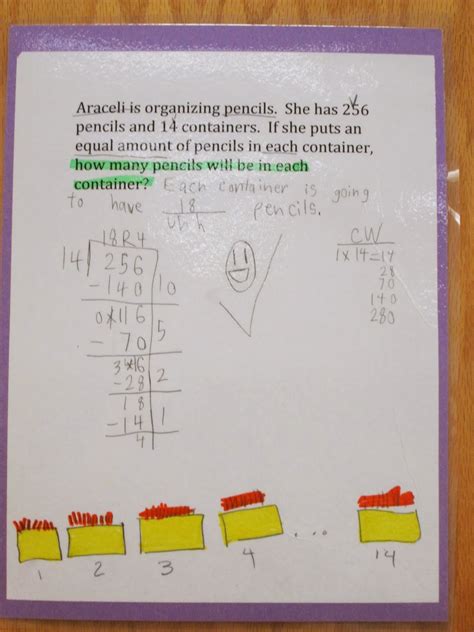 Araceli is organizing pencils. She has 256
pencils and 14 containers. If she puts an
equal amount of pencils in each container,
how many pencils will be in each
container? Each container is going
to have 18 pencils.
18R4
14 256
-140 10
116
- 70 5
-28 2
18
-14 1
4
CW
1x14=14
28
70
140
280
1
2
3
4
...
14